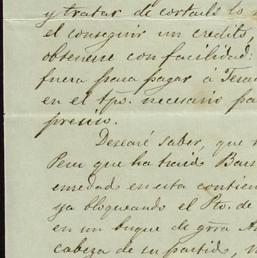 y tratar de cortarle lo
el conseguir un credito,
obtenerse con facilidad:
fuera para pagar á
en el tpo. necesario pa
precio.
Desearé saber, que
Peru que ha traido
en esta contien
ya bloqueando el Pto. de
en un buque de grra
cabeza de su partido,